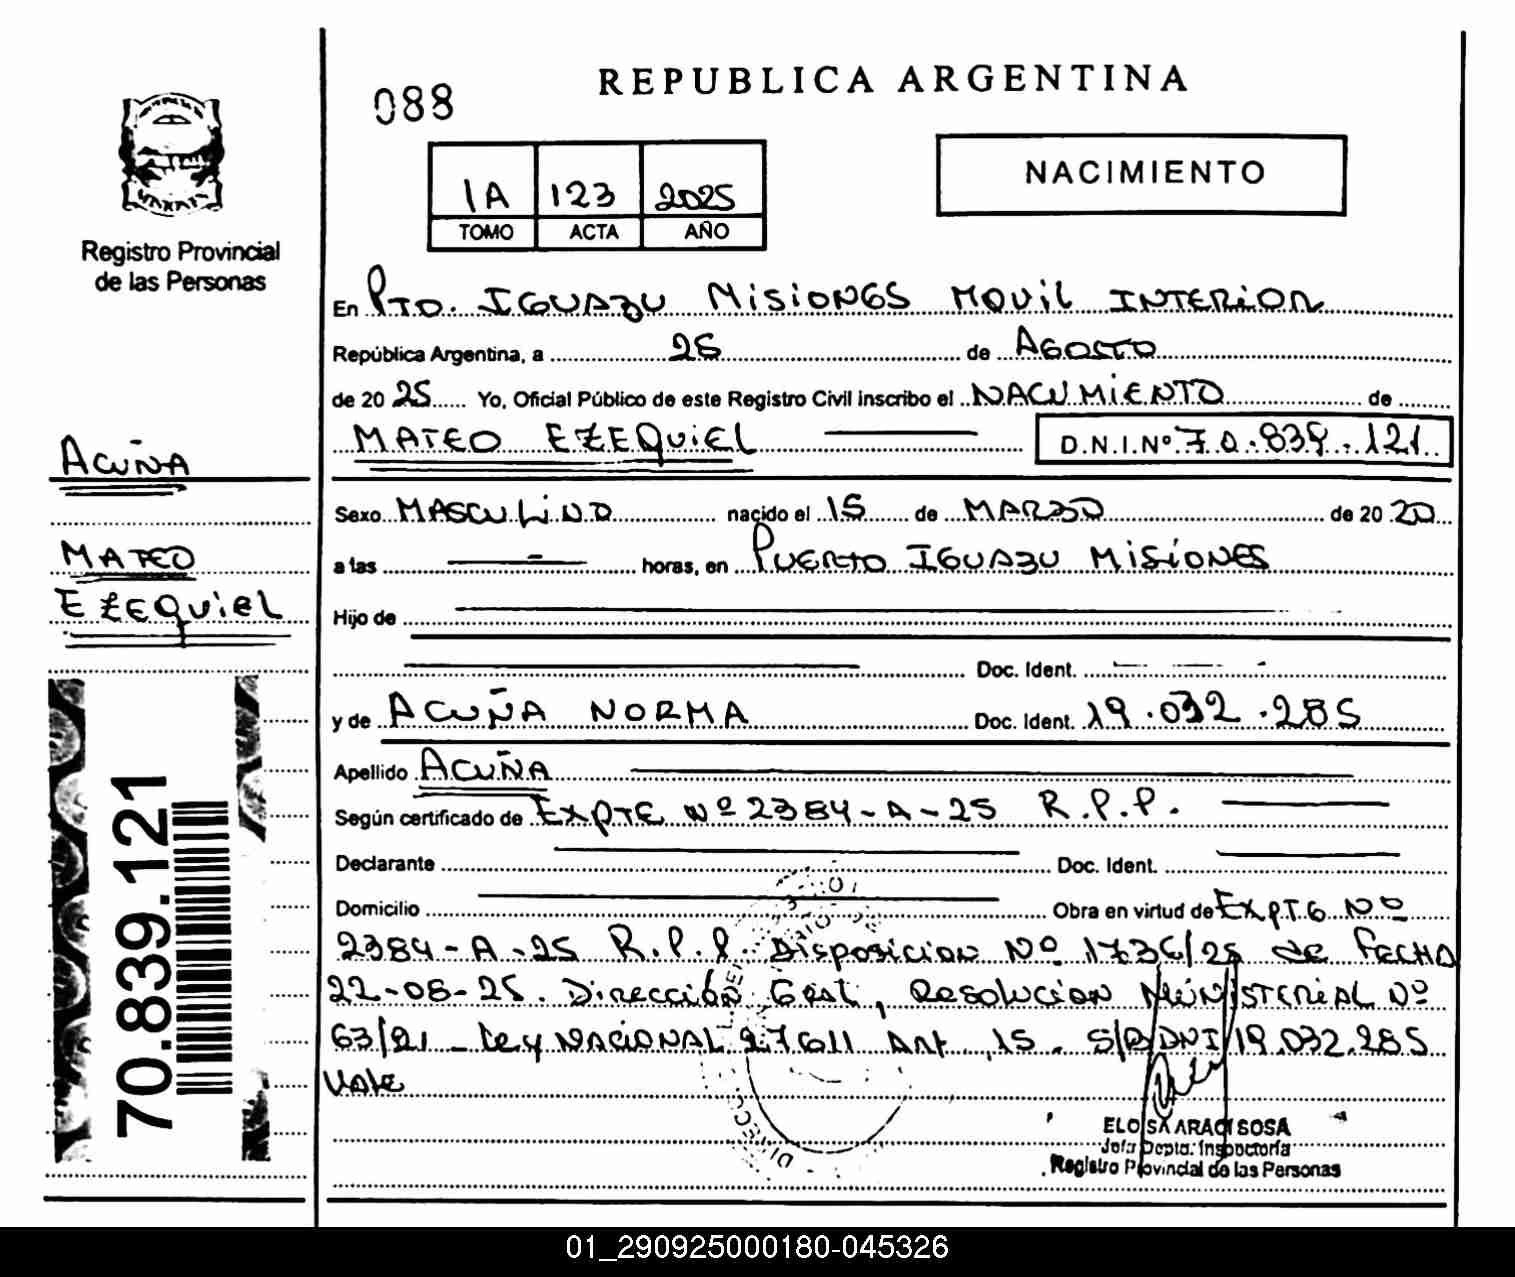 088
REPUBLICA ARGENTINA
NACIMIENTO
1A 123 2025
TOMO ACTA AÑO
Registro Provincial
de las Personas
En PTO. IGUAZU MISIONES MOVIL INTERIOR
República Argentina, a 25 de AGOSTO
de 20 25 Yo, Oficial Público de este Registro Civil inscribo el NACIMIENTO de
MATEO EZEQUIEL D.N.I.Nº 70.839.121
ACUÑA
MATEO
EZEQUIEL
70.839.121
Sexo MASCULINO nacido el 15 de MARZO de 20 20
a las horas, en PUERTO IGUAZU MISIONES
Hijo de
Doc. Ident.
y de ACUÑA NORMA Doc. Ident. 19.032.285
Apellido ACUÑA
Según certificado de EXPTE Nº 2384-A-25 R.P.P.
Declarante Doc. Ident.
Domicilio Obra en virtud de EXPTE Nº
2384-A-25 R.P.P. Disposicion Nº de FECHA
22-08-25. Dirección Gral, Resolucion MINISTERIAL Nº
63/21 - Ley NACIONAL 27611 Art 15. S/R DNI 19.032.285
Vale
ELOISA ARACI SOSA
Jefa Depto. Inspectoría
Registro Provincial de las Personas
01_290925000180-045326